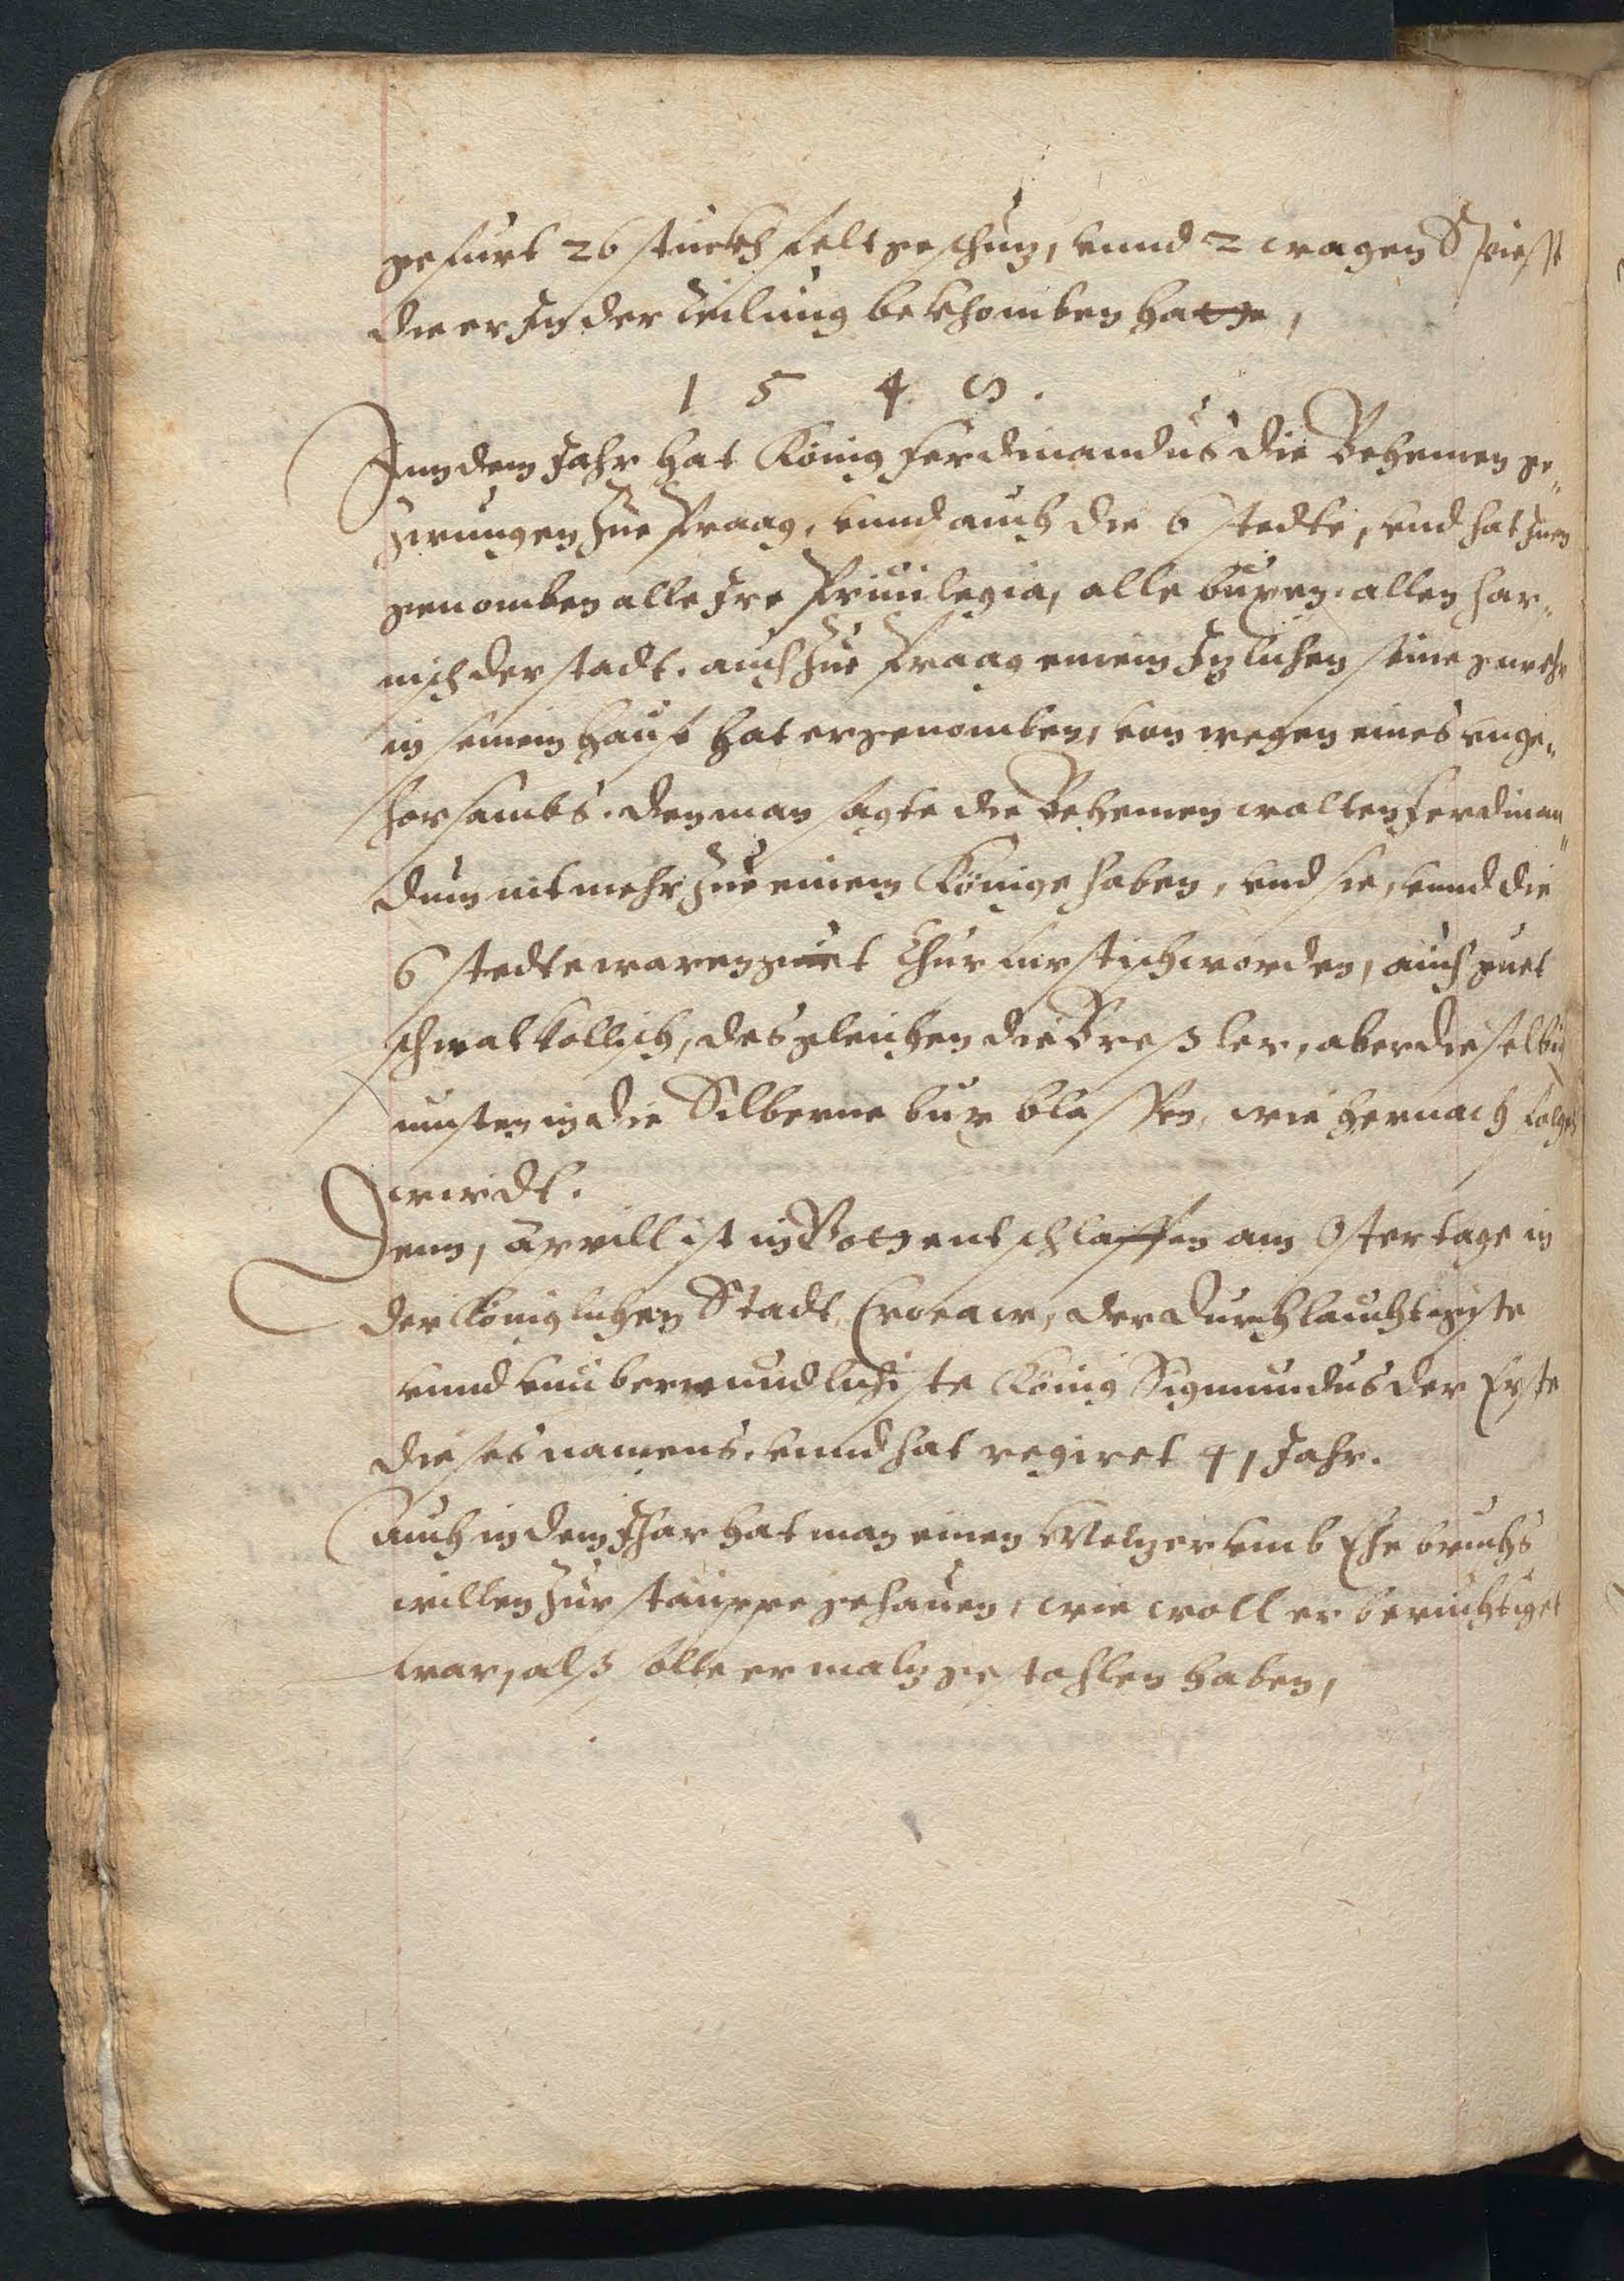 gefurt 26 stuckh feltgeschuz, vnnd 2 wagen Spiesse
die er In der teilung bekhomben hatte,
1 5 4 8.
Inn dem Jahr hat König Ferdinandus die Behemen ge„
zwungen zue Praag, vnnd auch die 6 stedte, vnd hat Inen
genomben alle Ire Priuilegia, alle buxen, allen har„
nisch der stadt. auch zue Praag einem Izlichen seine gwehr
in seinem hauß hat er genomben, von wegen eines unge„
horsambs. den man sagte die Behemen wolten Ferdinan„
dum nit mehr zue einem Könige haben, vnd sie, vnnd die
6 stedte waren guet Churfurstisch worden, auch guet
schmalkallisch, des gleichen die Breßler, aber dieselbig
musten in die Silberne bux blassen, wie hernach folgen
wirdt.
Denn, Aprill ist in Gott entschlaffen am Ostertage in
der Königlichen Stadt Croaca, der Durchlauchtigiste
vnnd vnuberwundlichiste König Sigmundus der Erste
dieses namens. vnnd hat regiret 41 Jahr.
Auch in dem Ihar hat man einen Melzer vmb Ehebruchs
willen zur stauppe gehauen, wie woll er beruchtiget
war, alß solte er malz gestohlen haben,